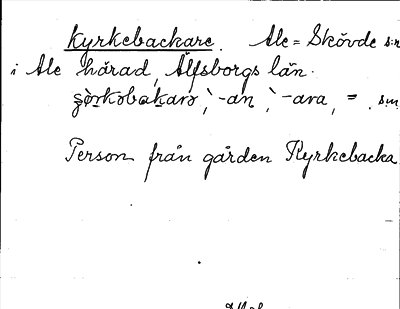 Kyrkebackare. Ale=Skövde s:n
i Ale härad, Älfsborgs län.
-an, -ara, =. sm
Person från gården Kyrkebacka